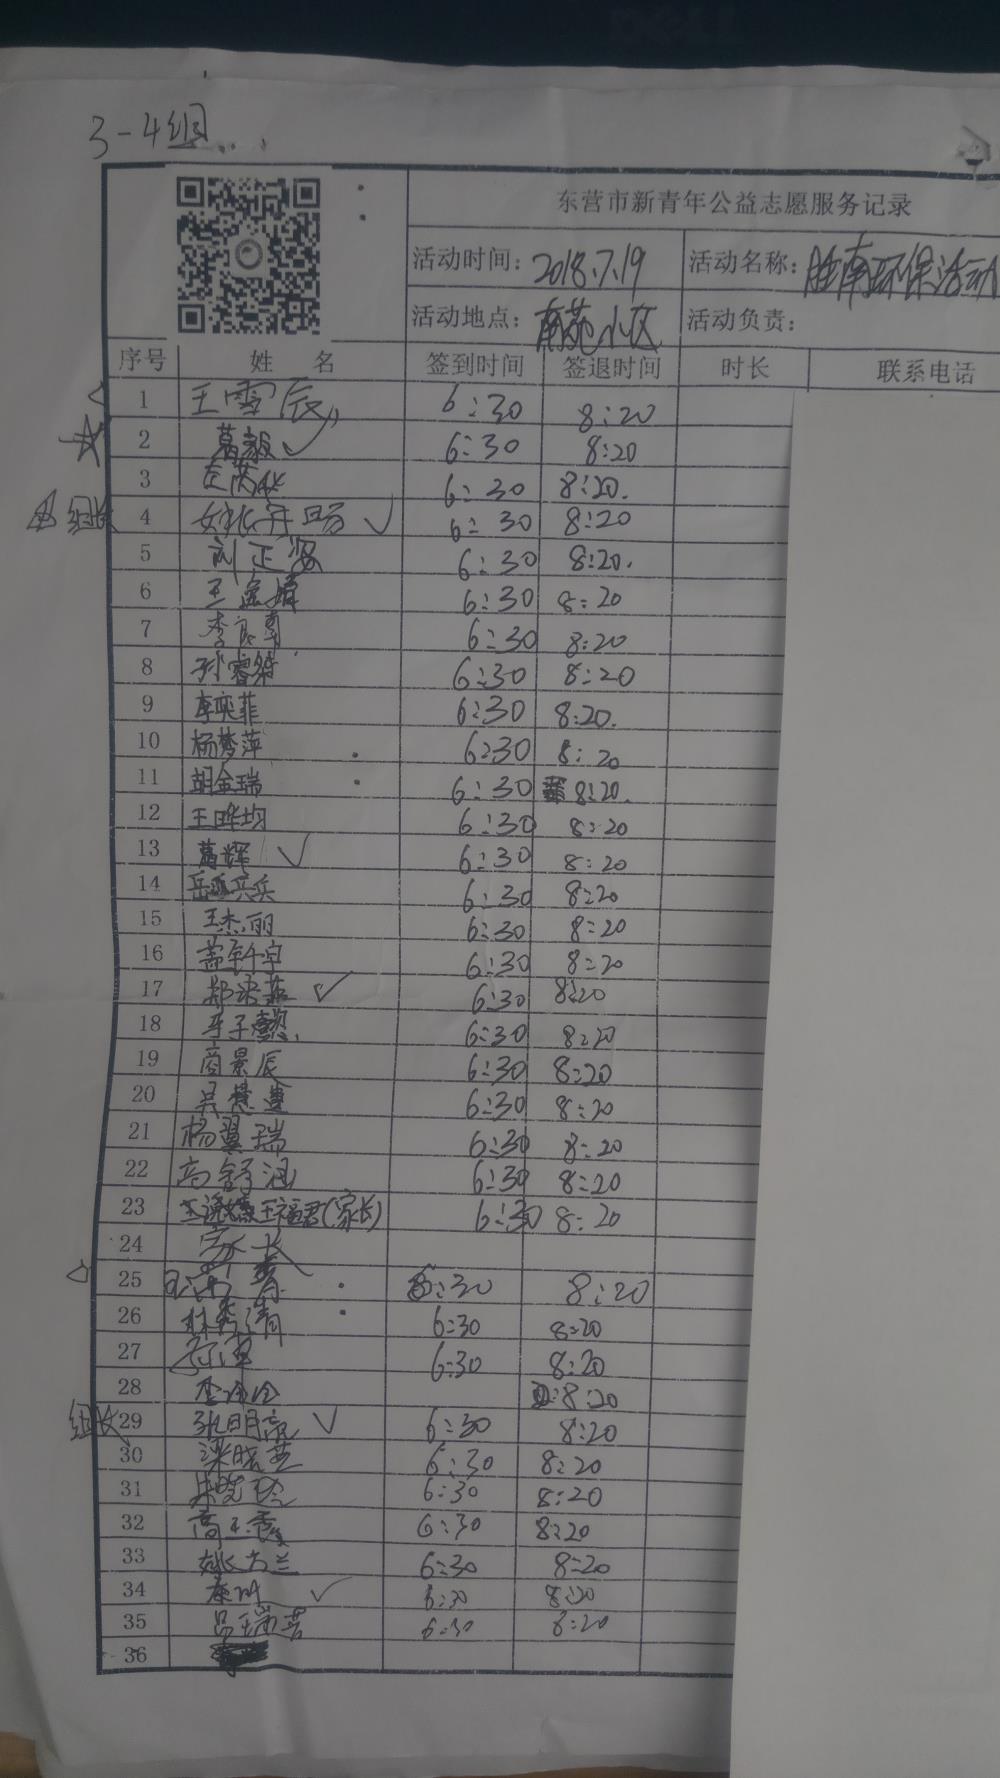 3-4组
东营市新青年公益志愿服务记录
活动时间：2018.7.19 活动名称：胜南环保活动
活动地点：南苑小区 活动负责：
序号 姓 名 签到时间 签退时间 时长 联系电话
1 王雪辰 6:30 8:20
2 葛毅 ✓ 6:30 8:20
3 6:30 8:20.
组长 4 ✓ 6:30 8:20
5 刘正 6:30 8:20.
6 王 6:30 8:20
7 李 6:30 8:20
8 孙睿 6:30 8:20
9 李奕菲 6:30 8:20.
10 杨梦萍 6:30 8:20
11 胡金瑞 6:30 8:20.
12 王晔均 6:30 8:20
13 葛辉 ✓ 6:30 8:20
14 岳 兵兵 6:30 8:20
15 王杰丽 6:30 8:20
16 6:30 8:20
17 郑 ✓ 6:30 8:20
18 子懿 6:30 8:20
19 商景辰 6:30 8:20
20 吴慧 6:30 8:20
21 杨翼瑞 6:30 8:20
22 高舒涵 6:30 8:20
23 王福君(家长) 6:30 8:20
24 家长
25 6:30 8:20
26 林秀清 6:30 8:20
27 6:30 8:20
28 李 8:20
组长 29 张明亮 ✓ 6:30 8:20
30 梁晓芸 6:30 8:20
31 6:30 8:20
32 6:30 8:20
33 姚 兰 6:30 8:20
34 ✓ 6:30 8:20
35 吕瑞 6:30 8:20
36